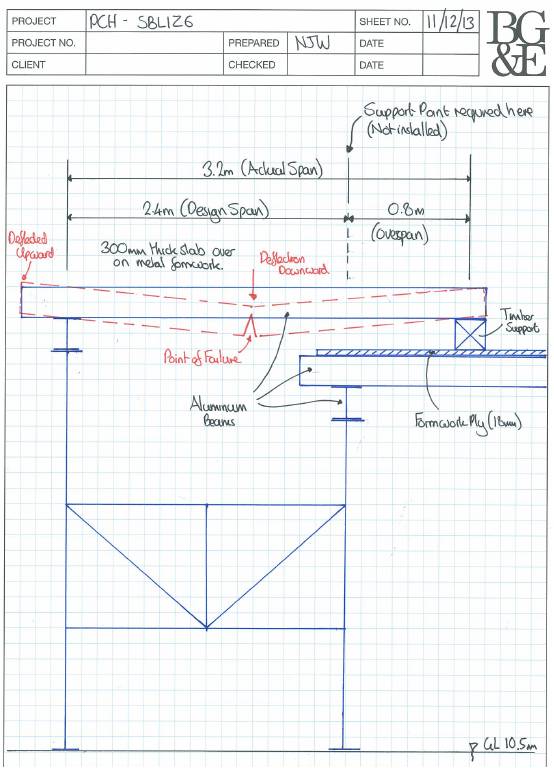 PROJECT PCH - SBL1Z6 SHEET NO. 11/12/13
PROJECT NO. PREPARED NJW DATE
CLIENT CHECKED DATE
BG
&E
Support Point required here
(Not installed)
3.2m (Actual Span)
2.4m (Design Span)
0.8m
(Overspan)
Deflected
Upward
300mm thick slab over
on metal formwork.
Deflection
Downward
Timber
Support
Point of Failure
Aluminum
Beams
Formwork Ply (18mm)
GL 10.5m